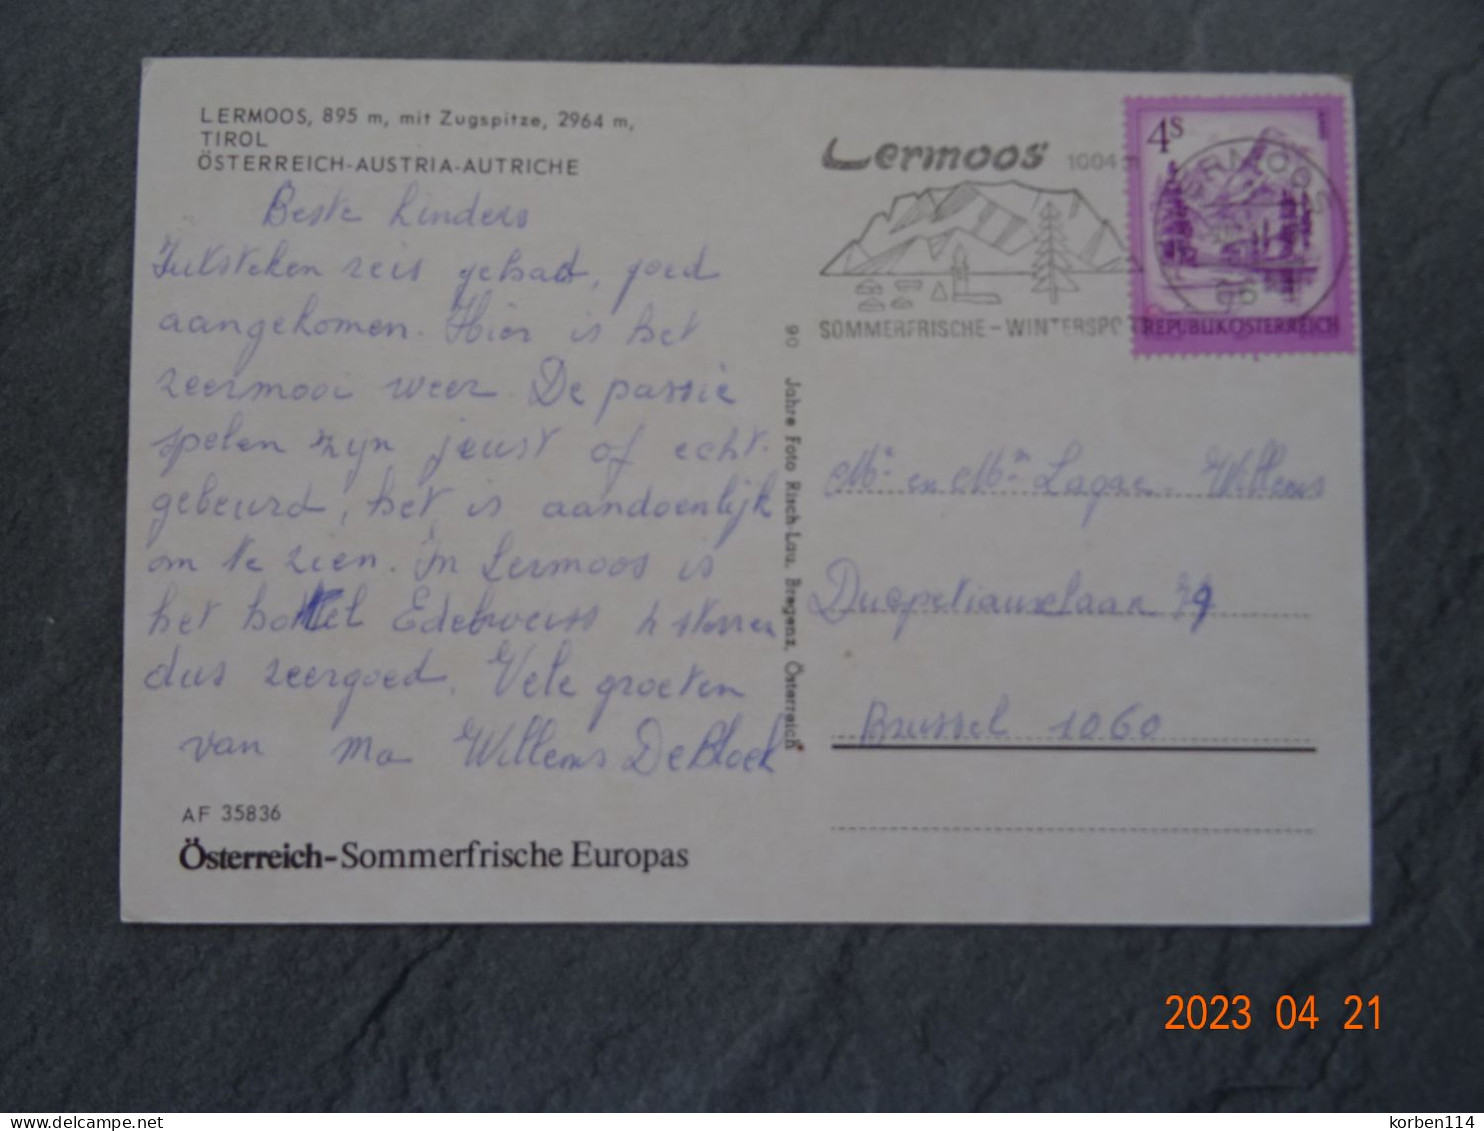 LERMOOS, 895 m, mit Zugspitze, 2964 m,
TIROL
ÖSTERREICH-AUSTRIA-AUTRICHE
Beste kinders
zeis gehad, goed
aangekomen. Hier is het
zeermooi weer. De passie
spelen zyn jeust of echt
gebeurd, het is aandoenlijk
om te zien. In Lermoos is
het hottel Edelweiss 4 sterren
dus zeergoed. Vele groeten
van ma Willems DeBloek
AF 35836
Österreich-Sommerfrische Europas
90 Jahre Foto Risch-Lau, Bregenz, Österreich
Lermoos 1004 m
SOMMERFRISCHE - WINTERSPO
4S
REPUBLIK ÖSTERREICH
LERMOOS
Mr en Mm Lagae. Willems
Ducpetiauxlaan
Brussel 1060
2023 04 21
korben114